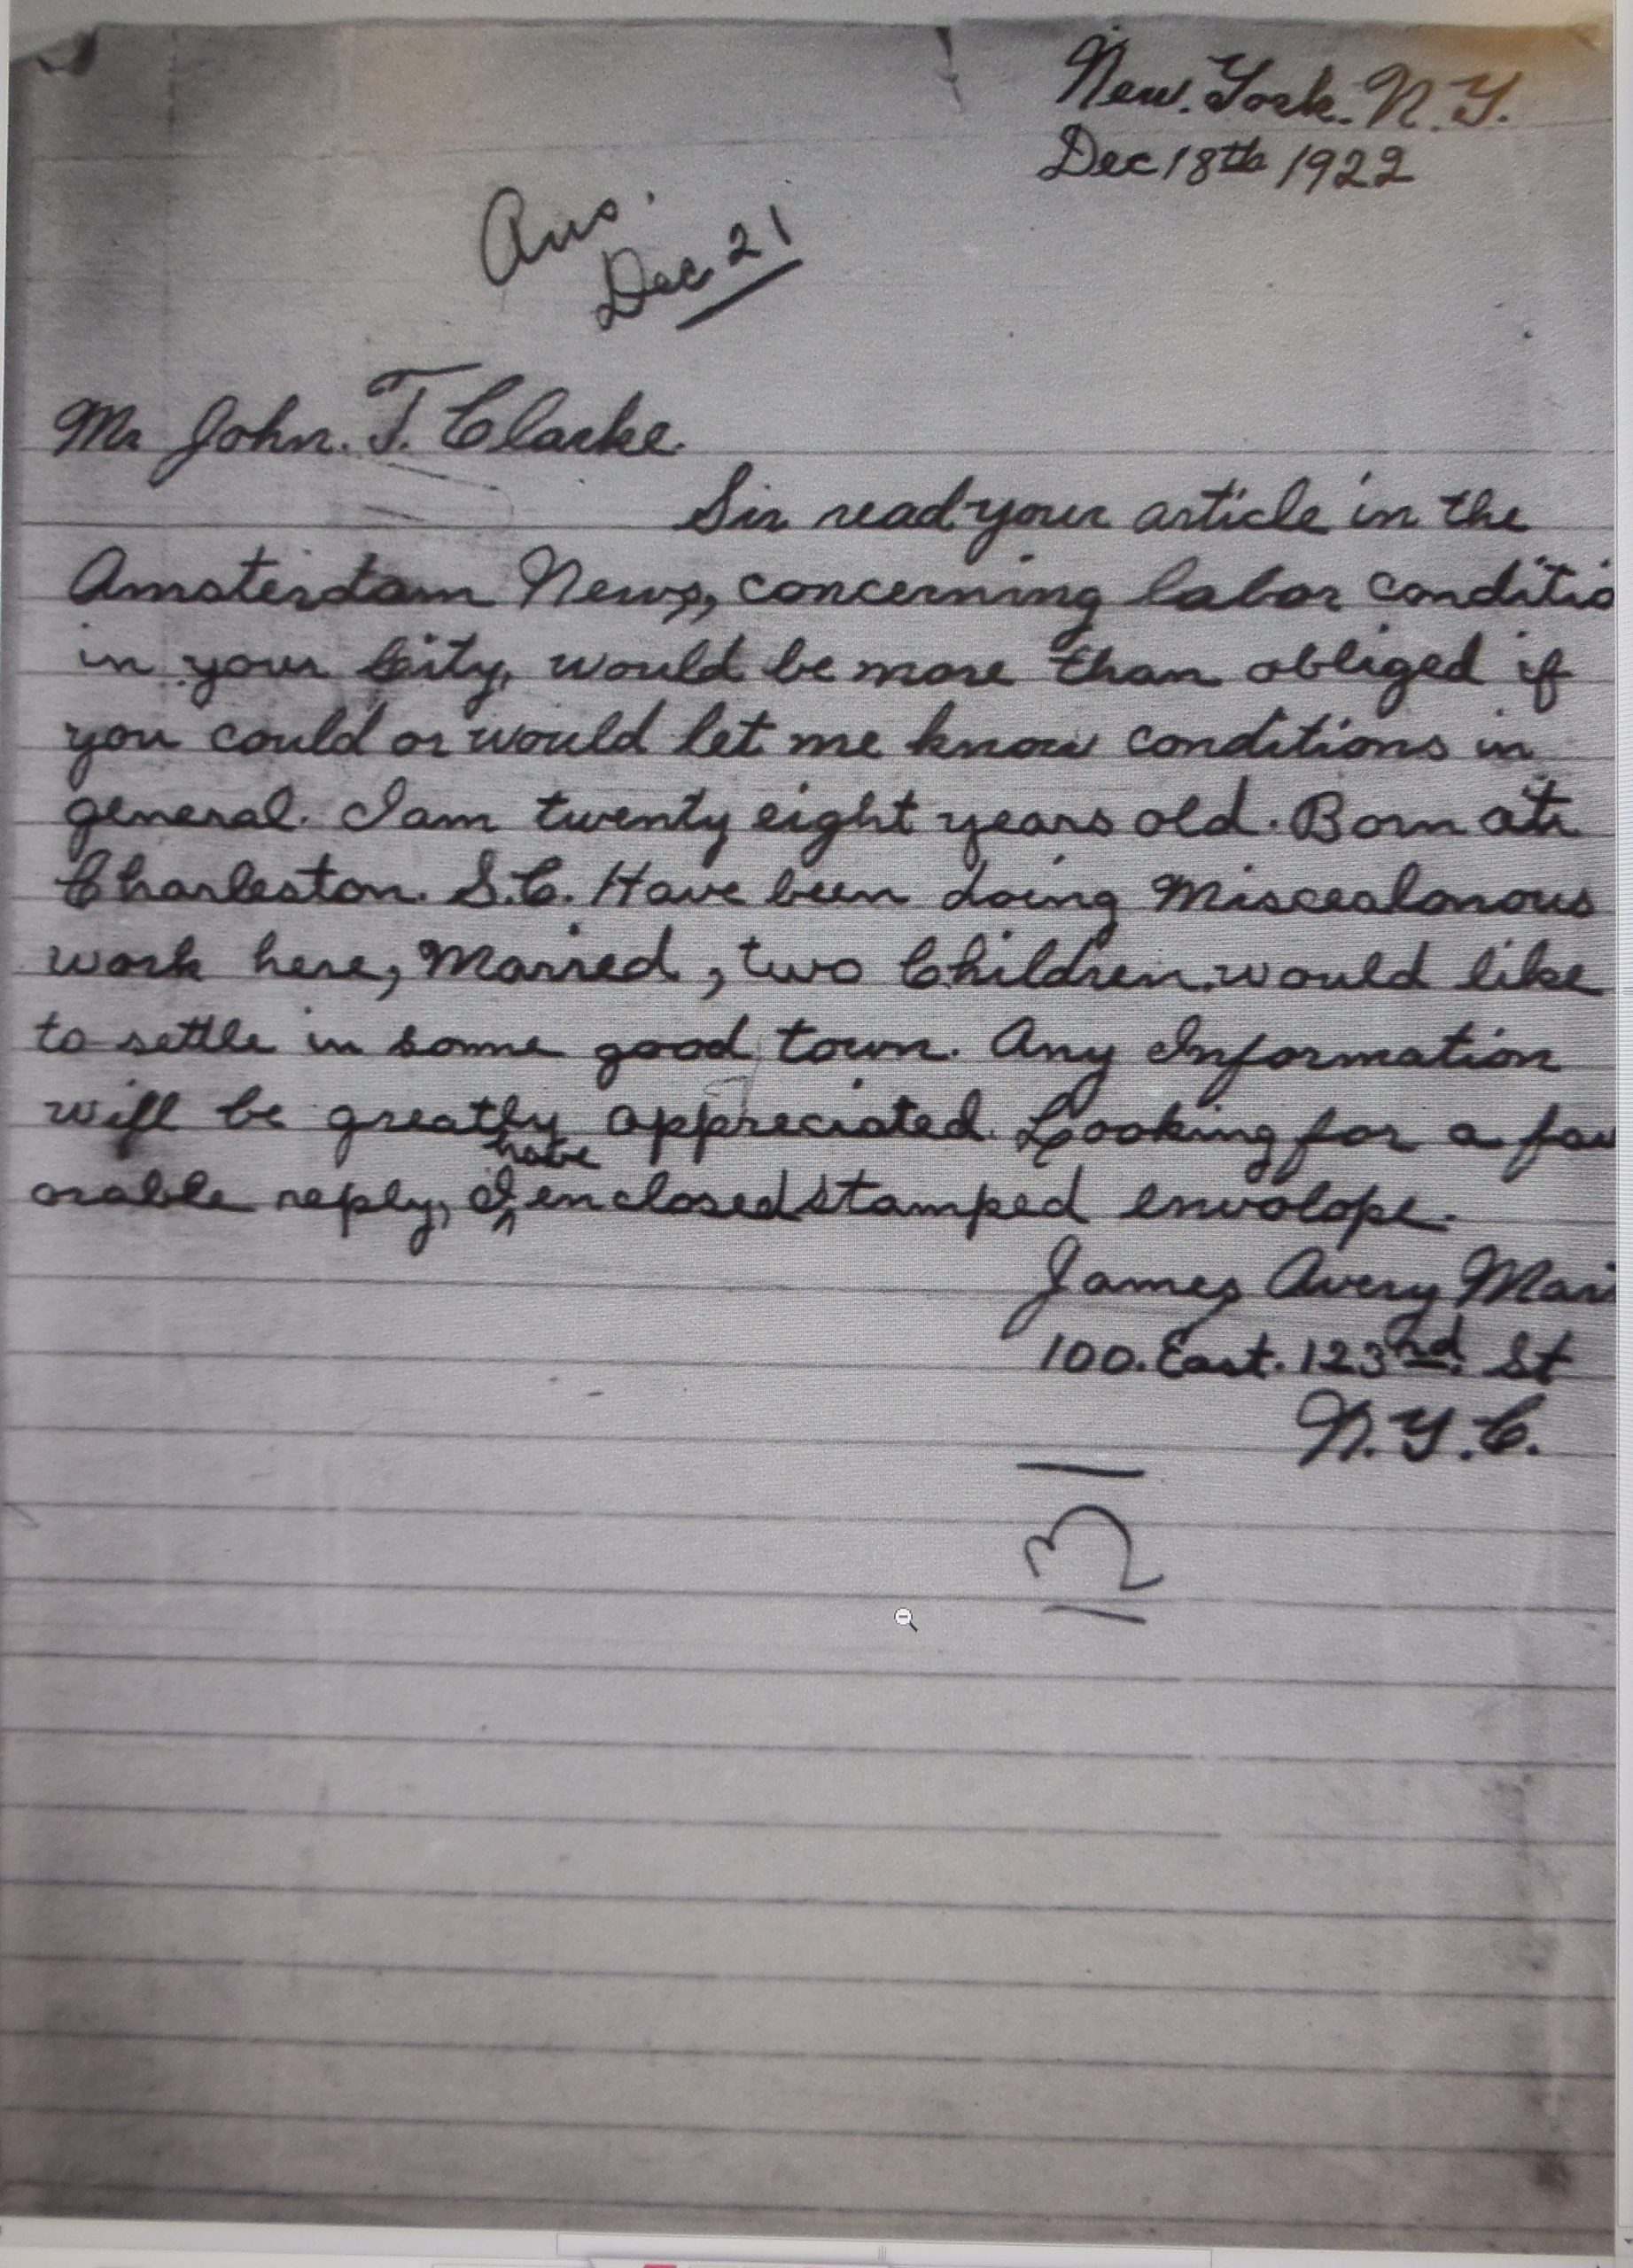 New. York. N.Y.
Dec 18th 1922
Ans.
Dec 21
Mr John. T. Clarke.
Sir read your article in the
Amsterdam News, concerning labor conditio
in your City, would be more than obliged if
you could or would let me know conditions in
general. I am twenty eight years old. Born at
Charleston. S.C. Have been doing Miscealonous
work here, Marred, two Children would like
to settle in some good town. Any Information
will be greatly appreciated. Looking for a fav
orable reply, I have enclosed stamped envolope.
James Avery Mar
100. East. 123rd. St
N.Y.C.